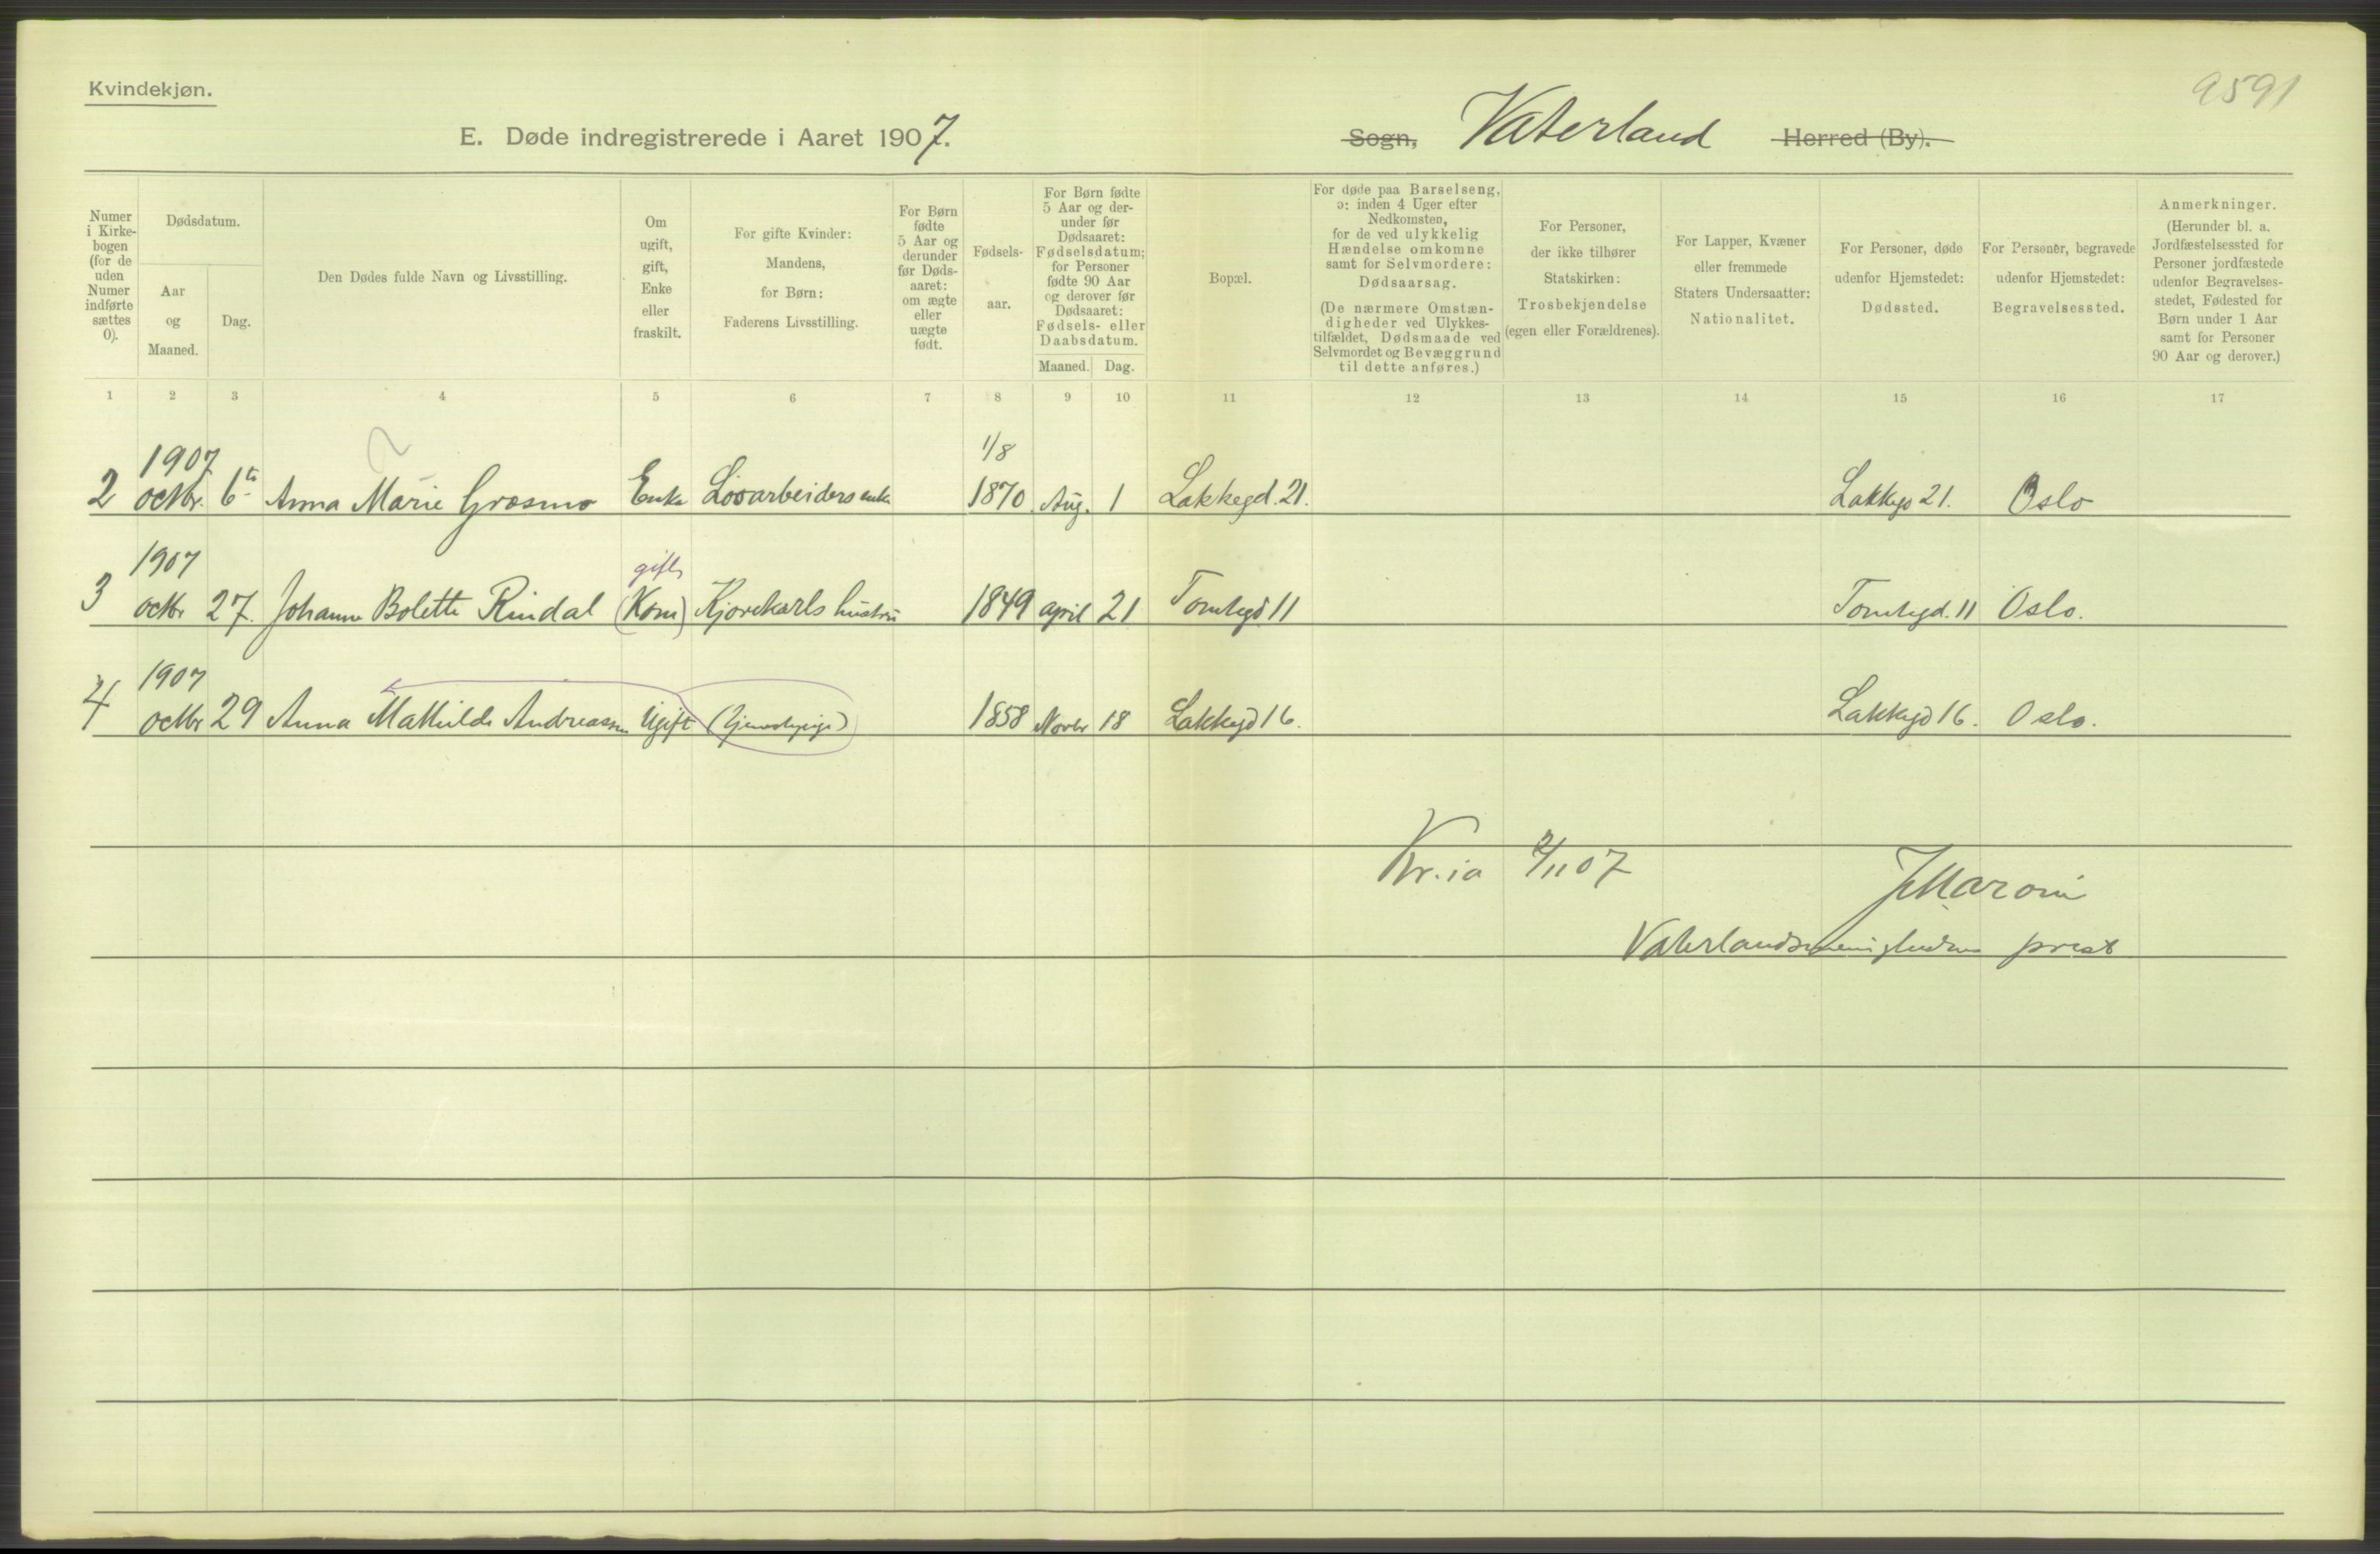 Kvindekjøn.
9591
E. Døde indregistrerede i Aaret 1907.
Sogn, Vaterland Herred (By).
Numer i Kirke-
bogen
(for de
uden
Numer
indførte
sættes
0).
Dødsdatum.
Aar
og
Maaned.
Dag.
Den Dødes fulde Navn og Livsstilling.
Om
ugift,
gift,
Enke
eller
fraskilt.
For gifte Kvinder:
Mandens,
for Børn:
Faderens Livsstilling.
For Børn
fødte
5 Aar og
derunder
før Døds-
aaret:
om ægte
eller
uægte
født.
Fødsels-
aar.
For Børn fødte
5 Aar og der-
under før
Dødsaaret:
Fødselsdatum;
for Personer
fødte 90 Aar
og derover før
Dødsaaret:
Fødsels- eller
Daabsdatum.
Maaned. Dag.
Bopæl.
For døde paa Barselseng,
ɔ: inden 4 Uger efter
Nedkomsten,
for de ved ulykkelig
Hændelse omkomne
samt for Selvmordere:
Dødsaarsag.
(De nærmere Omstæn-
digheder ved Ulykkes-
tilfældet, Dødsmaade ved
Selvmordet og Bevæggrund
til dette anføres.)
For Personer,
der ikke tilhører
Statskirken:
Trosbekjendelse
(egen eller Forældrenes).
For Lapper, Kvæner
eller fremmede
Staters Undersaatter:
Nationalitet.
For Personer, døde
udenfor Hjemstedet:
Dødssted.
For Personer, begravede
udenfor Hjemstedet:
Begravelsessted.
Anmerkninger.
(Herunder bl. a.
Jordfæstelsessted for
Personer jordfæstede
udenfor Begravelses-
stedet, Fødested for
Børn under 1 Aar
samt for Personer
90 Aar og derover.)
1 2 3 4 5 6 7 8 9 10 11 12 13 14 15 16 17
1907 1/8
2 octbr. 6te Anna Marie Grasmo Enke Løsarbeiders enke 1870 Aug. 1 Lakkegd. 21. Lakkegd 21. Oslo
1907 gift
3 octbr 27. Johanne Bolette Rindal (Kone) Kjørekarls hustru 1849 april 21 Tomtegd 11 Tomtegd. 11 Oslo.
1907
4 octbr 29 Anna Mathilde Andreassen Ugift (tjenestepige) 1858 Novbr 18 Lakkegd 16. Lakkegd 16. Oslo.
Kr.ia 2/11 07
Vaterlandsmenighedens prest